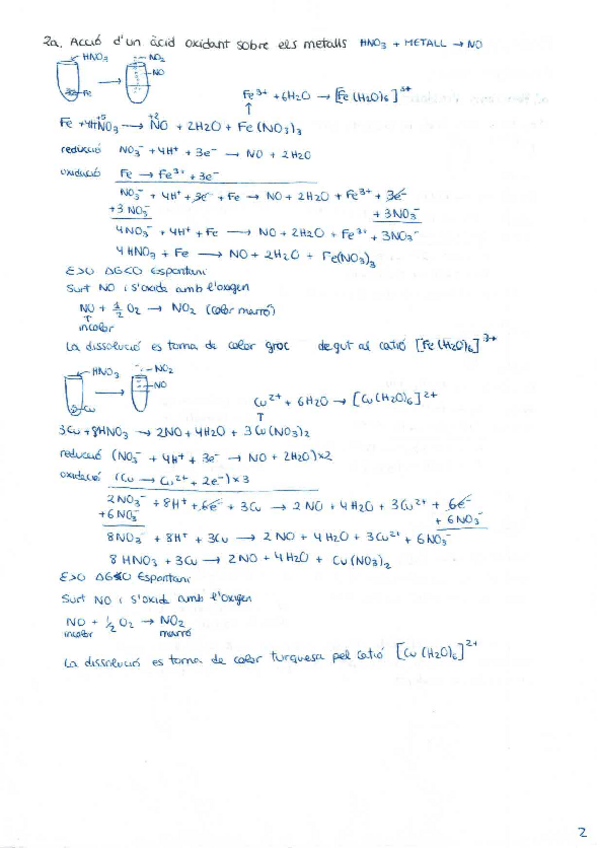 2a. Acció d'un àcid oxidant sobre els metalls HNO₃ + METALL → NO
HNO₃ NO₂
NO
Fe
Fe³⁺ + 6H₂O → [Fe(H₂O)₆]³⁺
↑
+5 +2
Fe + 4HNO₃ → NO + 2H₂O + Fe(NO₃)₃
reducció NO₃⁻ + 4H⁺ + 3e⁻ → NO + 2H₂O
oxidació Fe → Fe³⁺ + 3e⁻
NO₃⁻ + 4H⁺ + 3e⁻ + Fe → NO + 2H₂O + Fe³⁺ + 3e⁻
+3 NO₃⁻ + 3NO₃⁻
4NO₃⁻ + 4H⁺ + Fe → NO + 2H₂O + Fe³⁺ + 3NO₃⁻
4 HNO₃ + Fe → NO + 2H₂O + Fe(NO₃)₃
E>0 ΔG<0 Espontani
Surt NO i s'oxida amb l'oxigen
NO + ½ O₂ → NO₂ (color marró)
↑
incolor
La dissolució es torna de color groc degut al catió [Fe(H₂O)₆]³⁺
HNO₃ NO₂
NO
Cu
Cu²⁺ + 6H₂O → [Cu(H₂O)₆]²⁺
↑
3Cu + 8HNO₃ → 2NO + 4H₂O + 3Cu(NO₃)₂
reducció (NO₃⁻ + 4H⁺ + 3e⁻ → NO + 2H₂O)×2
oxidació (Cu → Cu²⁺ + 2e⁻)×3
2NO₃⁻ + 8H⁺ + 6e⁻ + 3Cu → 2NO + 4H₂O + 3Cu²⁺ + 6e⁻
+6NO₃⁻ + 6NO₃⁻
8NO₃⁻ + 8H⁺ + 3Cu → 2NO + 4H₂O + 3Cu²⁺ + 6NO₃⁻
8 HNO₃ + 3Cu → 2NO + 4H₂O + Cu(NO₃)₂
E>0 ΔG<0 Espontani
Surt NO i s'oxida amb l'oxigen
NO + ½ O₂ → NO₂
incolor marró
La dissolució es torna de color turquesa pel catió [Cu(H₂O)₆]²⁺
2